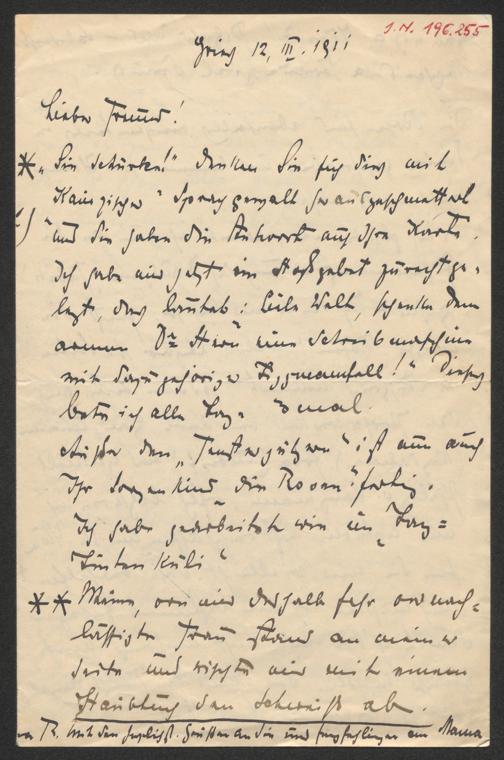 I.N. 196.255
12. III. 1911
Lieber Freund!
* „Sie Schurke!" denken Sie sich dies mit
Kainzischer Sprachgewalt herausgeschmettert
und Sie haben die Antwort auf Ihre Karte.
Ich habe mir jetzt ein Stoßgebet zurechtge-
legt, das lautet: Liebe Welt, schenke dem
armen Dr. Stern eine Schreibmaschine
mit dazugehöriger !" Dieses
bete ich alle Tage 3 mal.
Außer den „ " ist nun auch
Ihr Sorgenkind „die Rosen" fertig.
Ich habe gearbeitet wie ein „Tag-
Tinten Kuli"
** Meine, von mir deshalb sehr vernach-
lässigte Frau stand an meiner
Seite und wischte mir mit einem
Staubtuch den Schweiß ab.
Mit den herzlichst. Grüßen an Sie und Empfehlungen an Mama